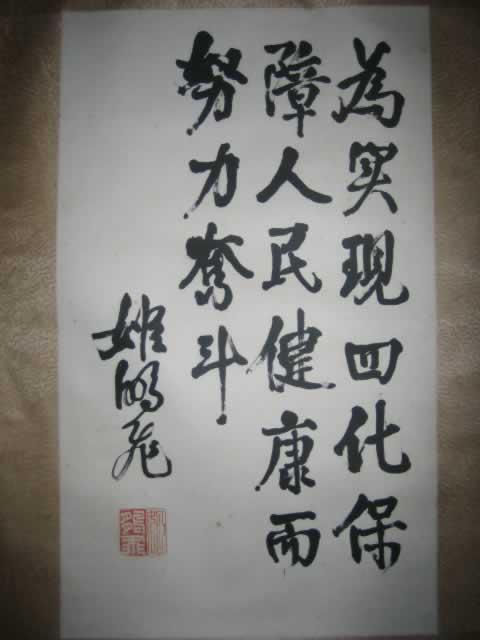 為实现四化保
障人民健康而
努力奮斗